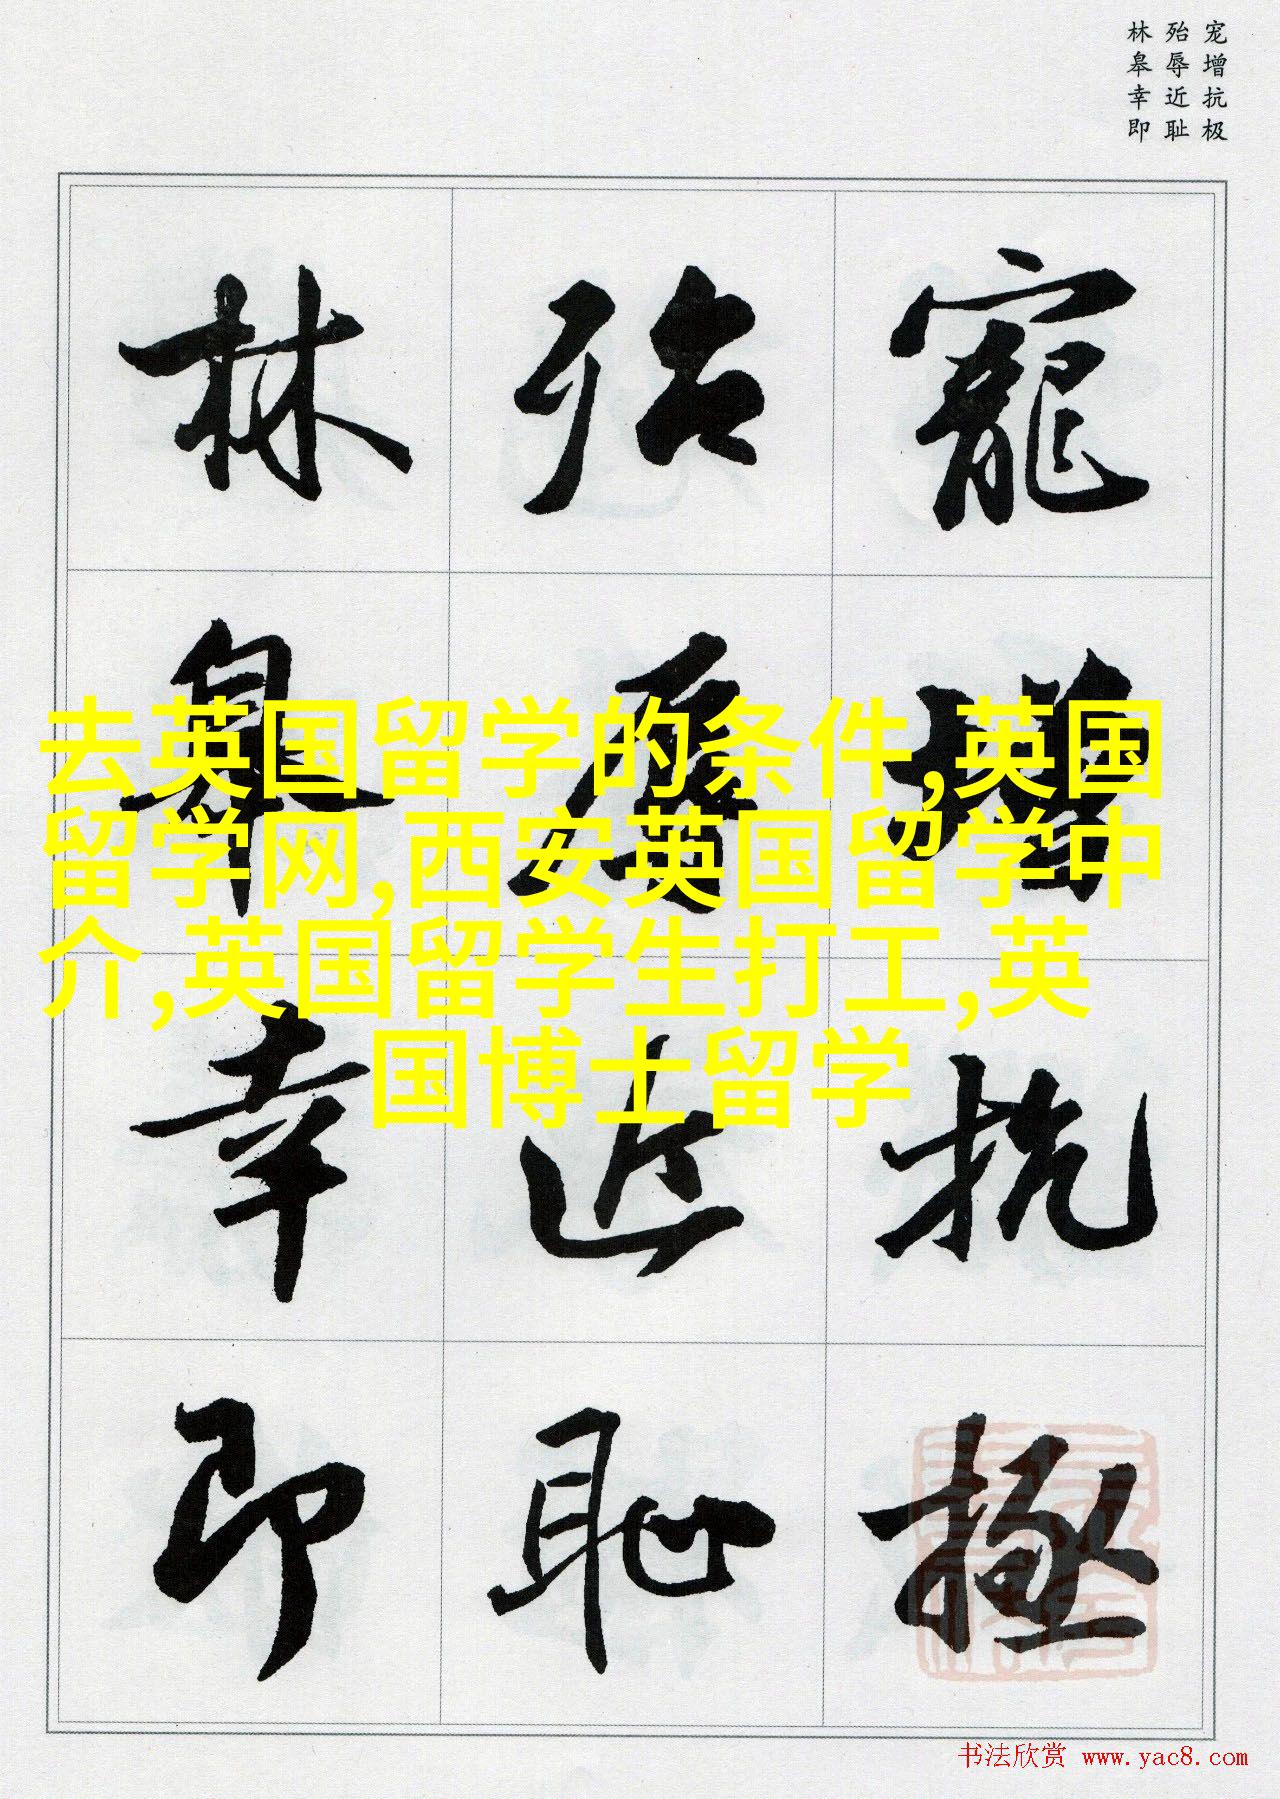 宠增抗极
殆辱近耻
林皋幸即
寵增抗極
殆辱近耻
林皋幸即
去英国留学的条件,英国
留学网,西安英国留学中
介,英国留学生打工,英
国博士留学
书法欣赏 www.yac8.com